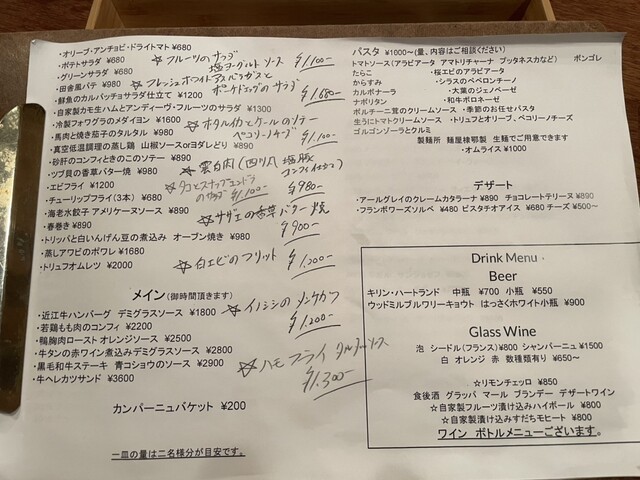 ・オリーブ・アンチョビ・ドライトマト ¥680
・ポテトサラダ ¥680
・グリーンサラダ ¥680
・田舎風パテ ¥980
・鮮魚のカルパッチョサラダ仕立て ¥1200
・自家製カモ生ハムとアンディーヴ・フルーツのサラダ ¥1300
・冷製フォワグラのメダイヨン ¥1100
・馬肉と焼き茄子のタルタル ¥980
・真空低温調理の蒸し鶏 山椒ソースorヨダレどり ¥980
・砂肝のコンフィときのこのソテー ¥890
・ツブ貝の香草バター焼 ¥980
・エビフライ ¥1200
・チューリップフライ(3本) ¥680
・海老水餃子 アメリケーヌソース ¥890
・春巻き ¥890
・トリッパと白いんげん豆の煮込み オーブン焼き ¥980
・蒸しアワビのポワレ ¥1680
・トリュフオムレツ ¥2000
☆フルーツのサラダ
塩ヨーグルトソース ¥1,100-
☆フレッシュホワイトアスパラガスと
ポーチドエッグのサラダ ¥1,680-
☆ホタルイカとケールのソテー
ペコリーノチーズ ¥1,100-
☆雲白肉(四川風塩豚
コンフィ仕立て) ¥980-
☆タコとスナップエンドウ
のサラダ ¥1,100-
☆サザエの香草バター焼
¥900-
☆白エビのフリット ¥1,200-
メイン(御時間頂きます)
・近江牛ハンバーグ デミグラスソース ¥1800
・若鶏もも肉のコンフィ ¥2200
・鴨胸肉ロースト オレンジソース ¥2500
・牛タンの赤ワイン煮込みデミグラスソース ¥2800
・黒毛和牛ステーキ 青コショウのソース ¥2900
・牛ヘレカツサンド ¥3600
☆イノシシのメンチカツ
¥1,200-
☆ハモフライ タルタルソース
¥1,300-
カンパーニュバケット ¥200
一皿の量は二名様分が目安です。
パスタ ¥1000~(量、内容はご相談ください)
トマトソース(アラビアータ アマトリチャーナ プッタネスカなど) ボンゴレ
たらこ ・桜エビのアラビアータ
からすみ ・シラスのペペロンチーノ
カルボナーラ ・大葉のジェノベーゼ
ナポリタン ・和牛ボロネーゼ
ポルチーニ茸のクリームソース ・季節のお任せパスタ
生うにトマトクリームソース ・トリュフとオリーブ、ペコリーノチーズ
ゴルゴンゾーラとクルミ
製麺所 麺屋棣鄂製 生麺でご用意できます
・オムライス ¥1000
デザート
・アールグレイのクレームカタラーナ ¥890 チョコレートテリーヌ ¥890
・フランボワーズソルベ ¥480 ピスタチオアイス ¥680 チーズ ¥500~
Drink Menu
Beer
キリン・ハートランド 中瓶 ¥700 小瓶 ¥550
ウッドミルブルワリーキョウト はっさくホワイト小瓶 ¥900
Glass Wine
泡 シードル(フランス)¥800 シャンパーニュ ¥1500
白 オレンジ 赤 数種類有り ¥650~
☆リモンチェッロ ¥850
食後酒 グラッパ マール ブランデー デザートワイン
☆自家製フルーツ漬け込みハイボール ¥800
☆自家製漬け込みすだちモヒート ¥800
ワイン ボトルメニューございます。